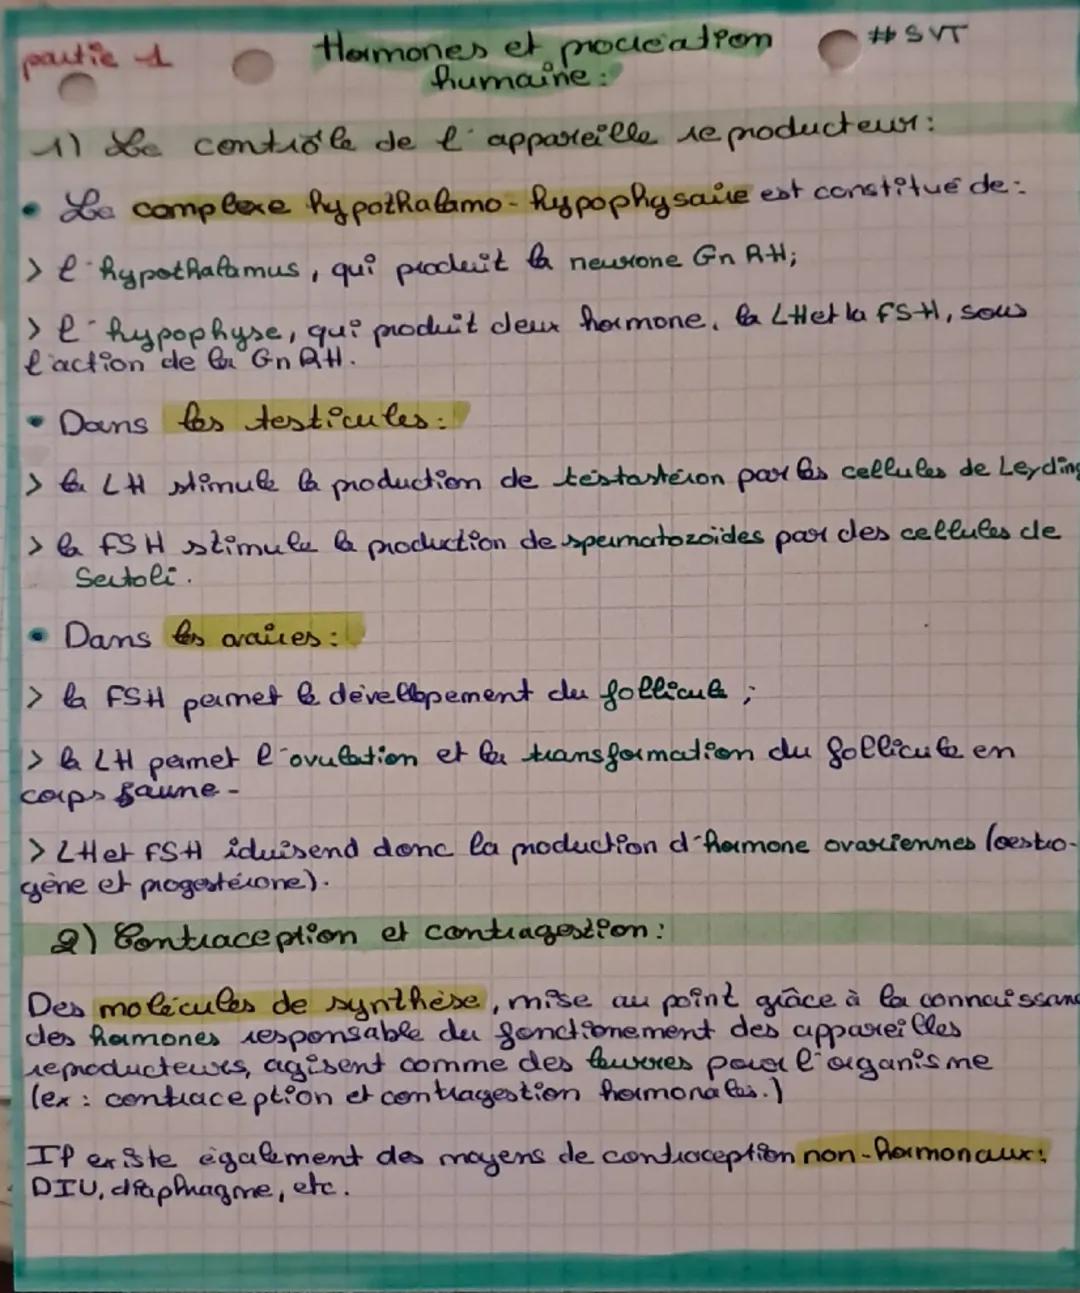 partie 1
Hormones et procréation
humaine :
# SVT
1) Le contrôle de l'appareille reproducteur :
• Le complexe hypothalamo-hypophysaire est constitué de :
> l'hypothalamus, qui produit la neurone GnRH;
> l'hypophyse, qui produit deux hormone, la LH et la FSH, sous
l'action de la GnRH.
• Dans les testicules :
> la LH stimule la production de testastéron par les cellules de Leyding
> la FSH stimule la production de spermatozoïdes par des cellules de
Sertoli.
• Dans les ovaires :
> la FSH permet le dévellopement du follicule ;
> la LH permet l'ovulation et la transformation du follicule en
corps jaune -
> LH et FSH iduisend donc la production d'hormone ovariennes (oestro-
gène et progestérone).
2) Contraception et contragestion :
Des molécules de synthèse, mise au point grâce à la connaissanc
des hormones responsable du fonctionement des appareilles
reproducteurs, agisent comme des leurres pour l'organisme
(ex : contraception et contragestion hormonales.)
Il existe également des moyens de contraception non-hormonaux :
DIU, diaphragme, etc.